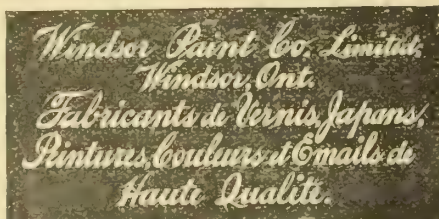 Windsor Paint Co. Limited,
Windsor, Ont.
Fabricants de Vernis, Japans,
Peintures, Couleurs et Emails de
Haute Qualité.